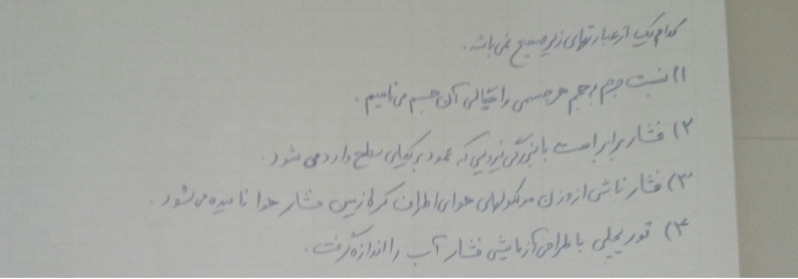 کدام یک از عبارتهای زیر صحیح نمی باشد.
۱) نسبت جرم بر حجم هر جسمی را چگالی آن جسم می نامیم.
۲) فشار برابر است با بزرگی نیرویی که عمود بر یکای سطح وارد می شود.
۳) فشار ناشی از وزن مولکولهای هوای اطراف کره زمین فشار هوا نامیده می شود.
۴) توریچلی با طراحی آزمایشی فشار آب را اندازه گرفت.